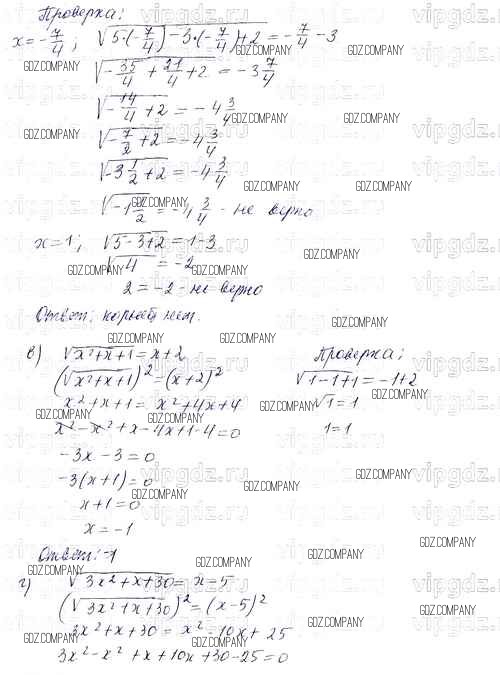 Проверка:
x = -7/4; √(5·(-7/4) - 3·(-7/4) + 2) = -7/4 - 3
√(-35/4 + 21/4 + 2) = -3 7/4
√(-14/4 + 2) = -4 3/4
√(-7/2 + 2) = -4 3/4
√(-3 1/2 + 2) = -4 3/4
√(-1 1/2) = -4 3/4 - не верно
x = 1; √(5-3+2) = 1-3
√4 = -2
2 = -2 - не верно
Ответ: корней нет.
в) √(x²+x+1) = x+2
(√(x²+x+1))² = (x+2)²
x²+x+1 = x²+4x+4
x²-x²+x-4x+1-4=0
-3x-3=0
-3(x+1)=0
x+1=0
x=-1
Проверка:
√(1-1+1) = -1+2
√1 = 1
1=1
Ответ: -1
г) √(3x²+x+30) = x-5
(√(3x²+x+30))² = (x-5)²
3x²+x+30 = x²-10x+25
3x²-x²+x+10x+30-25=0
GDZ.COMPANY
vipgdz.ru